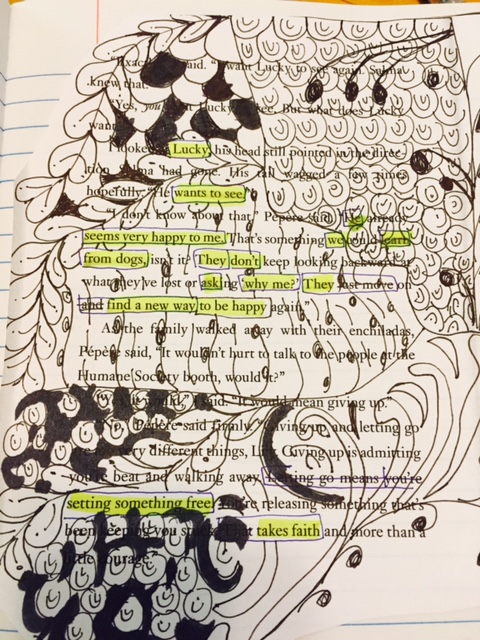 said. "I want Lucky to see again. Salma
knew that."
"Yes, you want Lucky to see. But what does Lucky
want?"
I looked at Lucky, his head still pointed in the direc-
tion Salma had gone. His tail wagged a few times
hopefully. "He wants to see."
"I don't know about that," Pépère said. "He already
seems very happy to me. That's something we could learn
from dogs, isn't it? They don't keep looking backward at
what they've lost or asking 'why me?' They just move on
and find a new way to be happy again."
As the family walked away with their enchiladas,
Pépère said, "It wouldn't hurt to talk to the people at the
Humane Society booth, would it?"
I said. "It would mean giving up."
"No," Pépère said firmly. "Giving up and letting go
are very different things, Giving up is admitting
you're beat and walking away. Letting go means you're
setting something free. You're releasing something that's
been keeping you stuck. That takes faith and more than a
little courage."